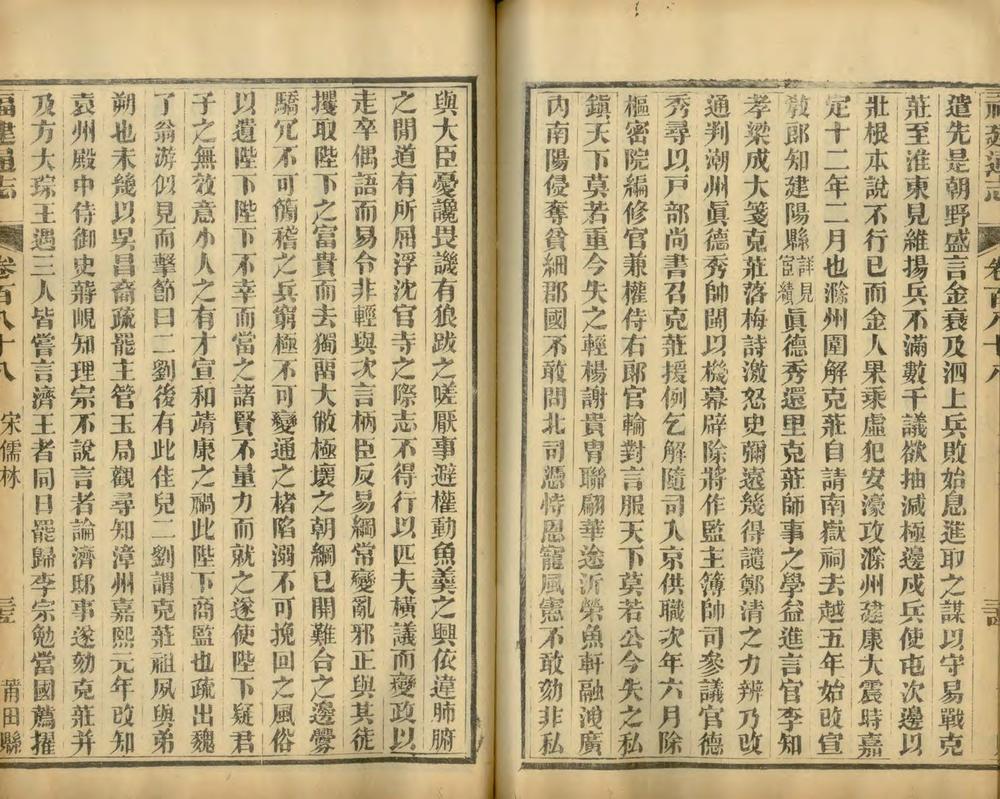 福建通志
卷百八十八
遣先是朝野盛言金衰及泗上兵敗始息進取之謀以守易戰克
莊至淮東見維揚兵不滿數千議欲抽減極邊戍兵使屯次邊以
壯根本說不行已而金人果乘虛犯安濠攻滁州建康大震時嘉
定十二年二月也滁州圍解克莊自請南嶽祠去越五年始改宣
敎郎知建陽縣詳見宦績眞德秀還里克莊師事之學益進言官李知
孝梁成大箋克莊落梅詩激怒史彌遠幾得譴鄭清之力辨乃改
通判潮州眞德秀帥閩以機幕辟除將作監主簿帥司參議官德
秀尋以戸部尚書召克莊援例乞解隨司入京供職次年六月除
樞密院編修官兼權侍右郎官輪對言服天下莫若公今失之私
鎮天下莫若重今失之輕楊謝貴胄聯翩華途沂榮魚軒融洩廣
內南陽侵奪貧細郡國不敢問北司憑恃恩寵風憲不敢劾非私
與大臣憂讒畏譏有狼跋之嗟厭事避權動魚羹之興依違肺腑
之閒道有所屈浮沈官寺之際志不得行以匹夫橫議而變政以
走卒偶語而易令非輕與次言柄臣反易綱常變亂邪正與其徒
攫取陛下之富貴而去獨留大敝極壞之朝綱已開難合之邊釁
驕冗不可簡稽之兵窮極不可變通之楮陷溺不可挽回之風俗
以遺陛下陛下不幸而當之諸賢不量力而就之遂使陛下疑君
子之無效意小人之有才宣和靖康之禍此陛下商監也疏出魏
了翁游似見而擊節曰二劉後有此佳兒二劉謂克莊祖夙與弟
朔也未幾以吳昌裔疏罷主管玉局觀尋知漳州嘉熙元年改知
袁州殿中侍御史蔣峴知理宗不說言者論濟邸事遂劾克莊并
及方大琮王邁三人皆嘗言濟王者同日罷歸李宗勉當國薦擢
福建通志
卷百八十八
宋儒林
莆田縣